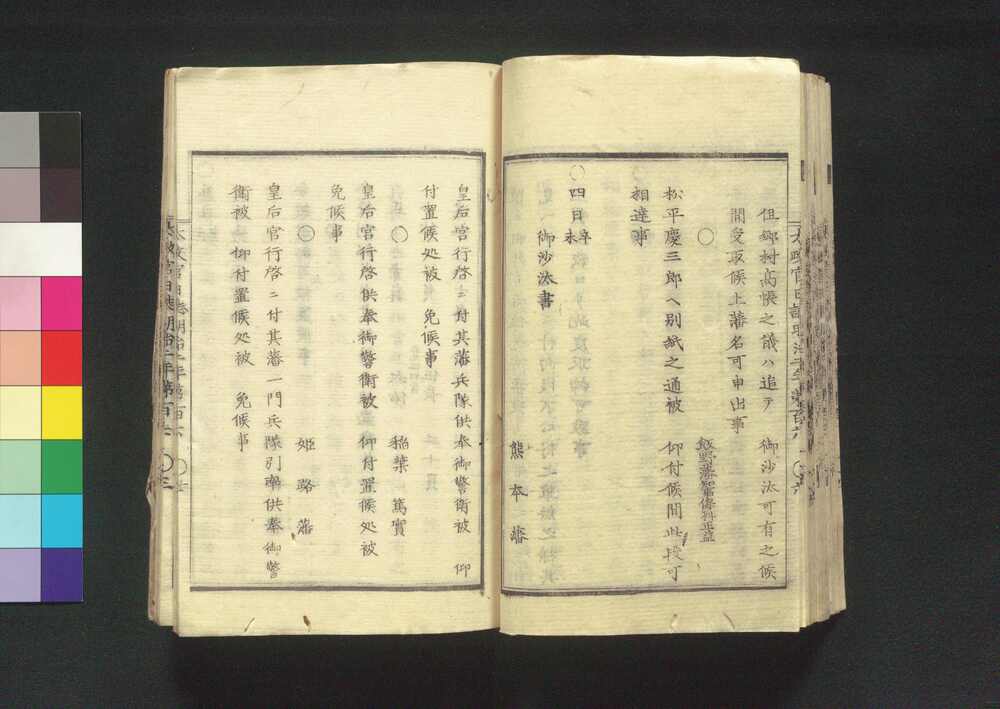 但郷村高帳之儀ハ追テ　御沙汰可有之候
間受取候上藩名可申出事
○
飯野藩知事保科正益
松平慶三郎ヘ別紙之通被　仰付候間此段可
相達事
○四日辛未
御沙汰書
熊本藩
皇后宮行啓ニ付其藩兵隊供奉御警衛被　仰
付置候処被　免候事
○
稲葉篤實
皇后宮行啓供奉御警衛被　仰付置候処被
免候事
○
姫路藩
皇后宮行啓ニ付其藩一門兵隊引率供奉御警
衛被　仰付置候処被　免候事